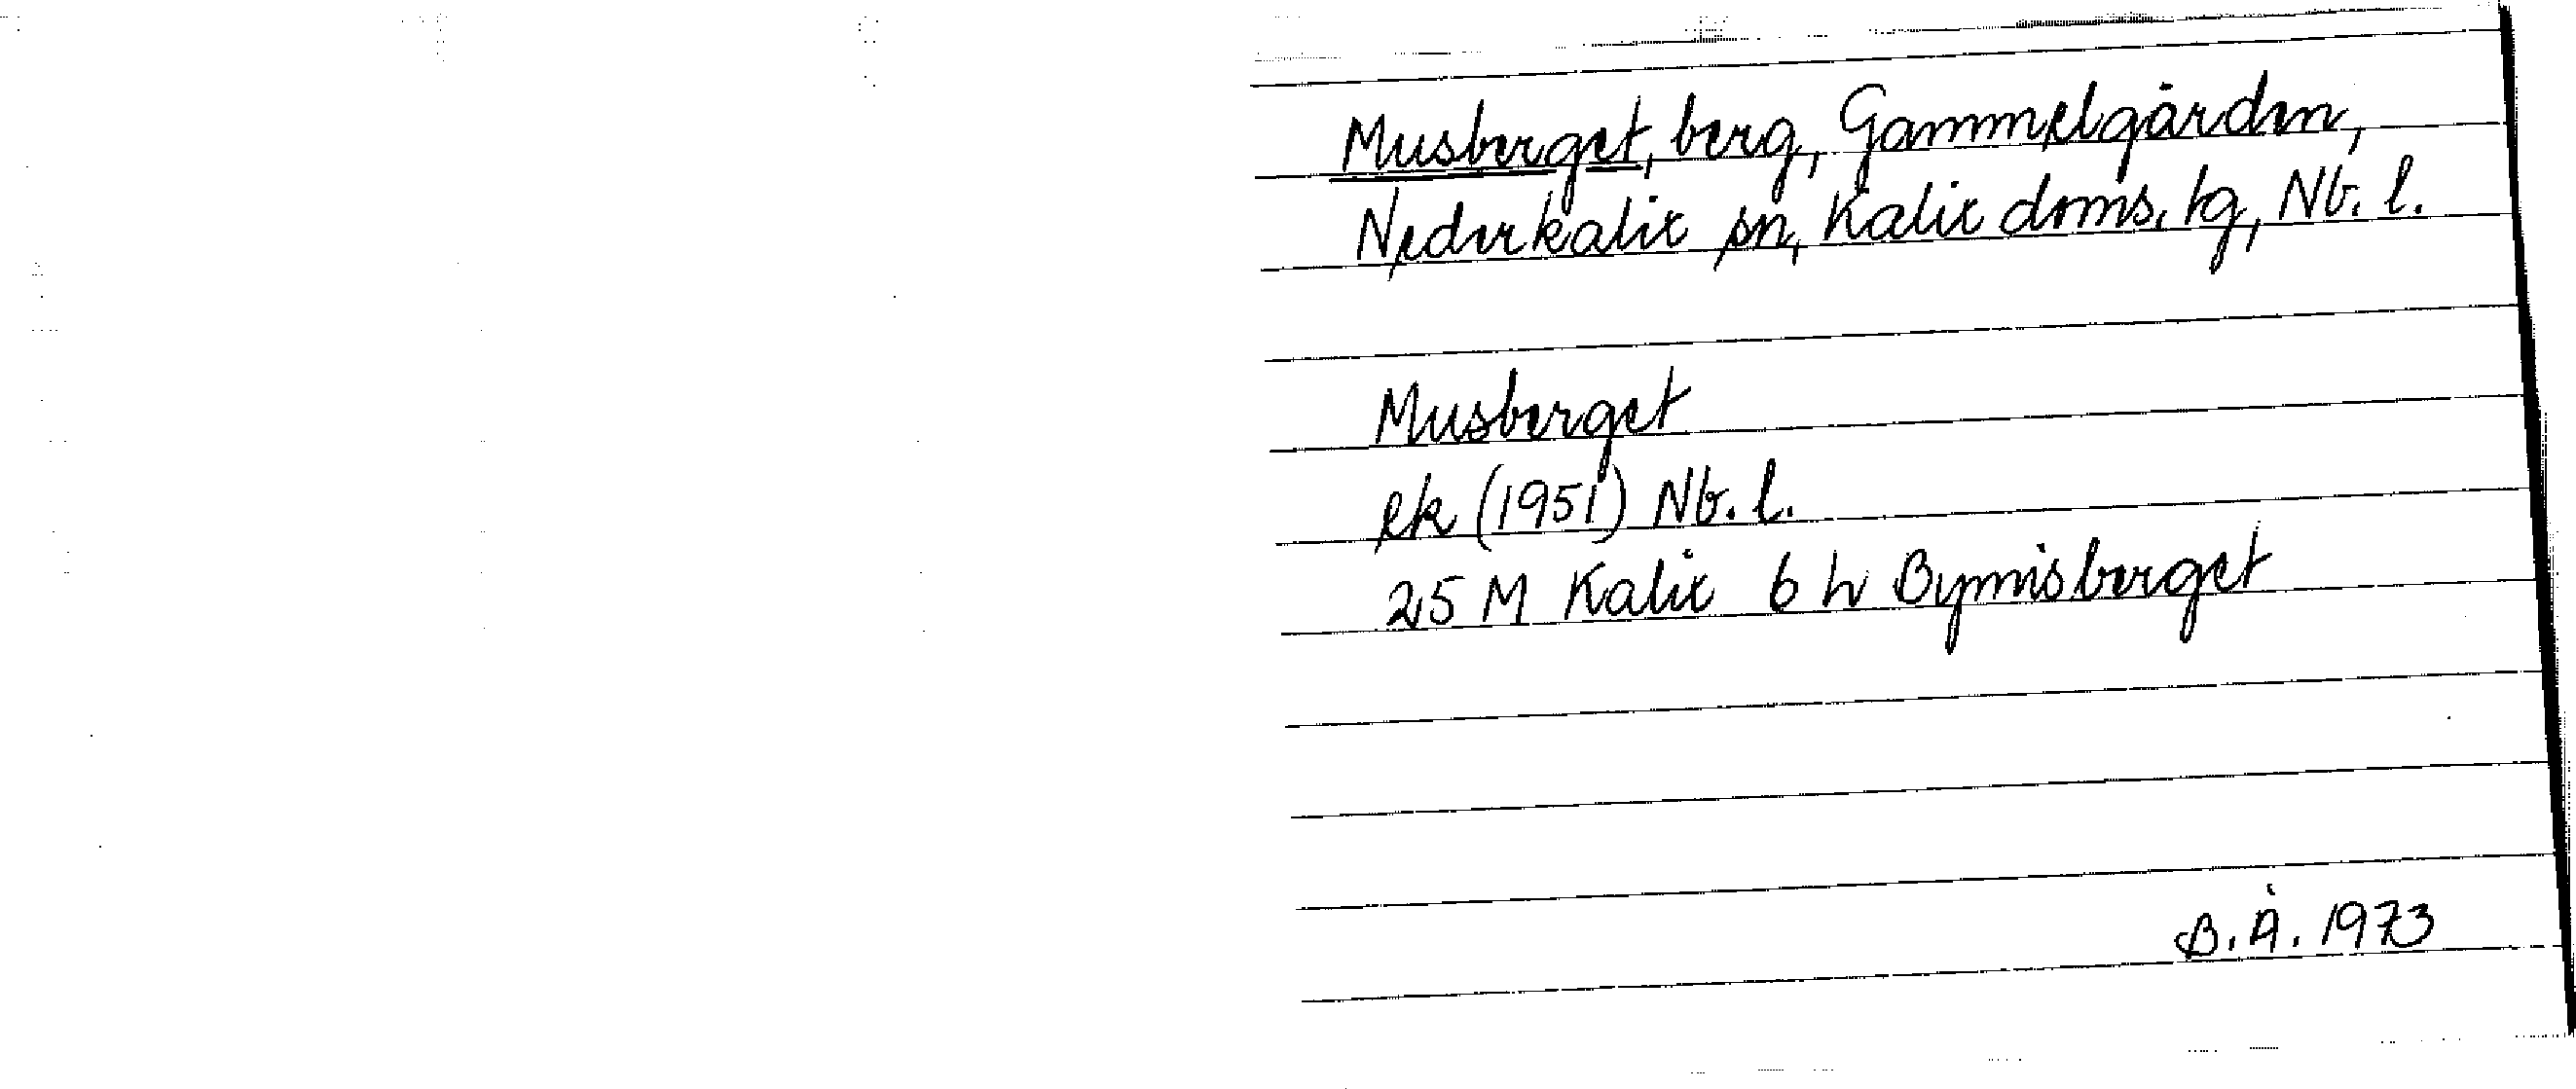 Musberget, berg, Gammelgården,
Nederkalix sn, Kalix doms. tg, Nb. l.
Musberget
ek (1951) Nb. l.
25 M Kalix 6 h Bymisberget
B.Å. 1973